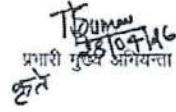 28/04/26
प्रभारी मुख्य अभियन्ता
कृते